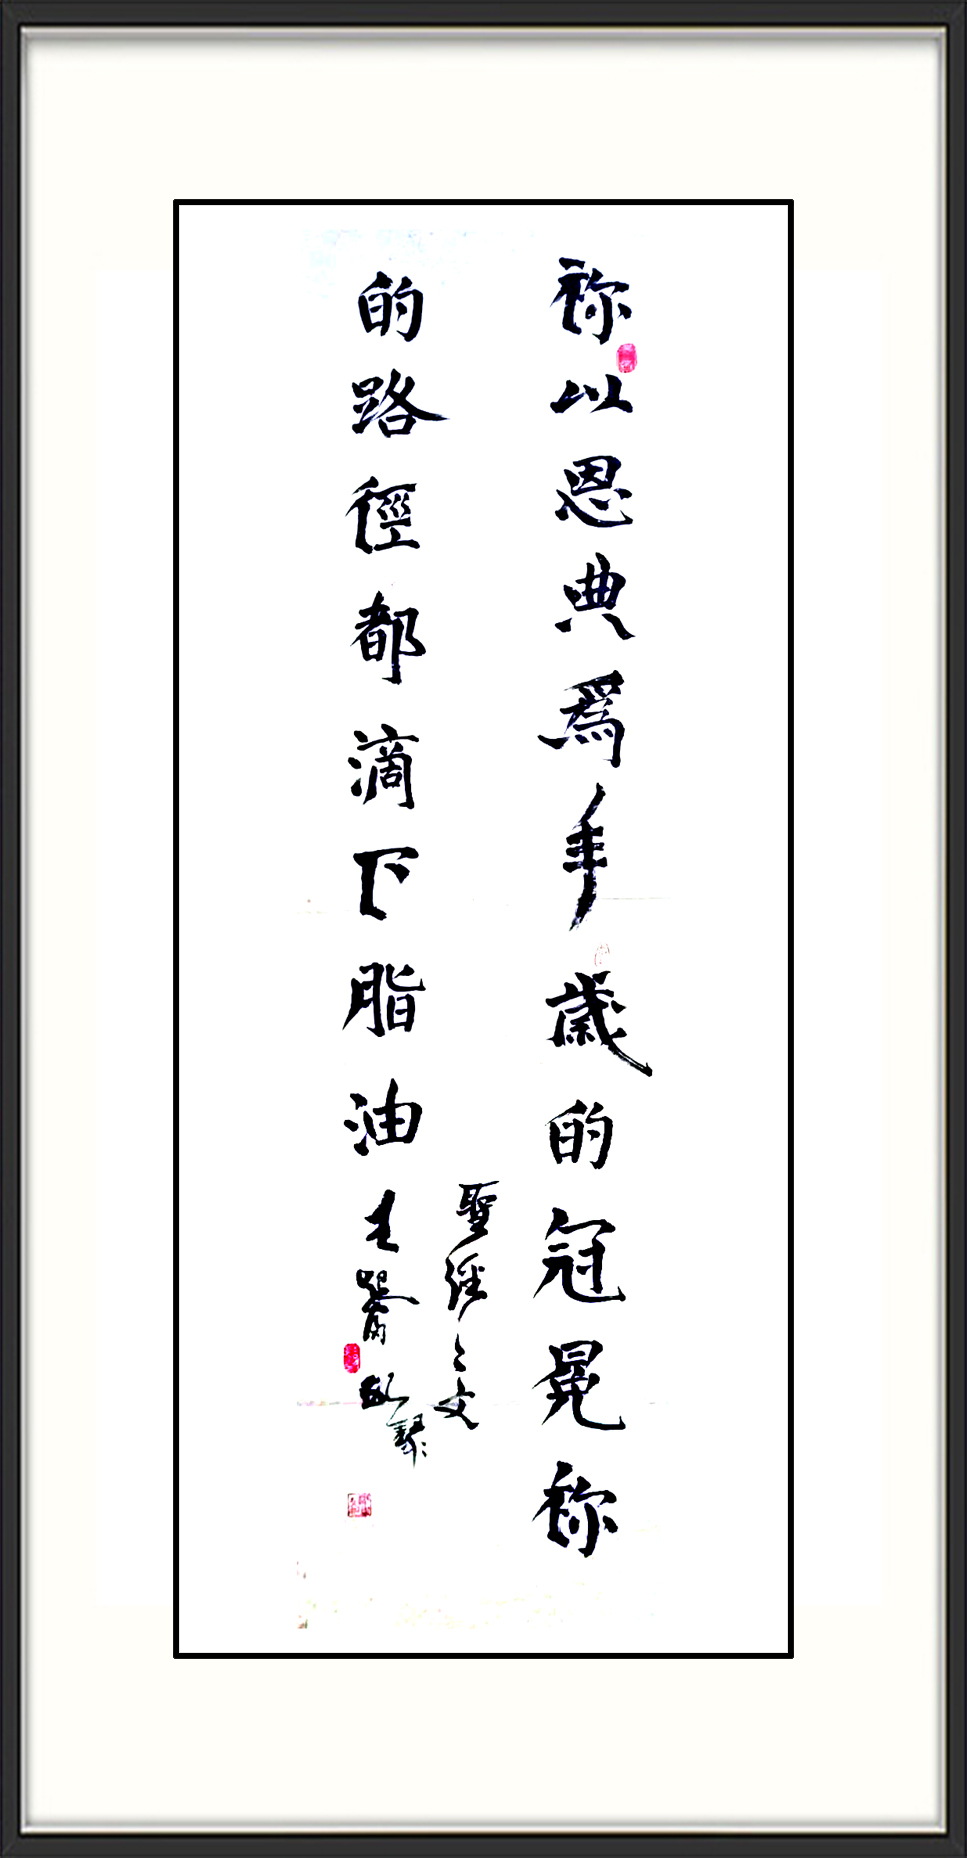 祢以恩典爲年歲的冠冕祢
的路徑都滴下脂油
聖經之文